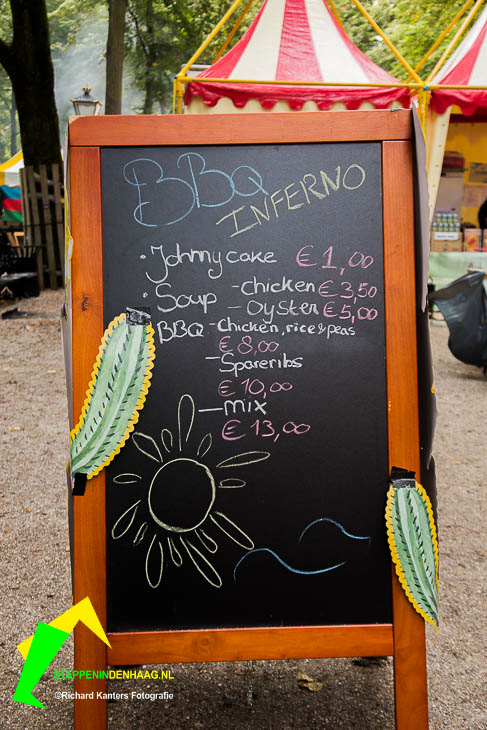 BBQ INFERNO
• Johnny cake €1,00
• Soup -chicken €3,50
-Oyster €5,00
BBQ -Chicken, rice & peas
€8,00
-Spareribs
€10,00
-mix
€13,00
STAPPENINDENHAAG.NL
©Richard Kanters Fotografie